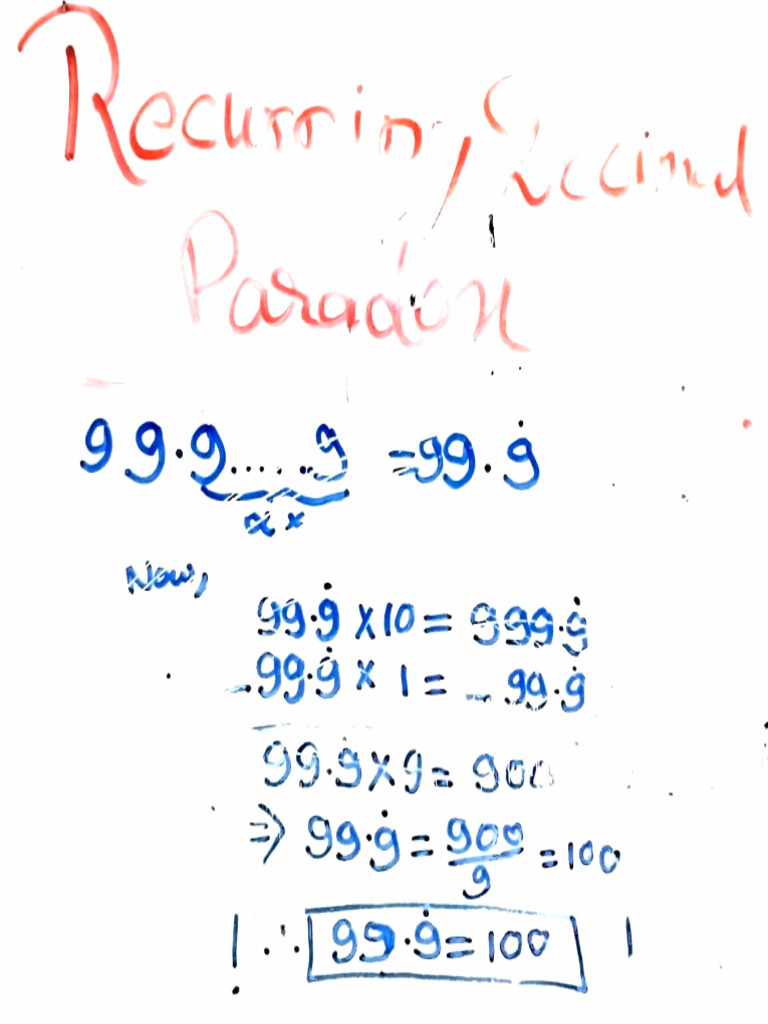 Recurring Decimal
Paradox
99.9.....9 = 99.9̇
αx
Now,
99.9̇ x 10 = 999.9̇
-99.9̇ x 1 = -99.9̇
99.9̇ x 9 = 900
=> 99.9̇ = 900/9 = 100
! ∴ 99.9̇ = 100 !